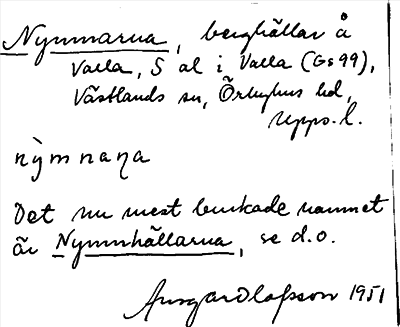 Nymmarna, berghällar å
Valla, S al i Valla (Gs 99),
Västlands sn, Örbyhus hd,
Upps. l.
nỳmnaṇa
Det nu mest brukade namnet
är Nymnhällarna, se d.o.
Ansgar Olofsson 1951